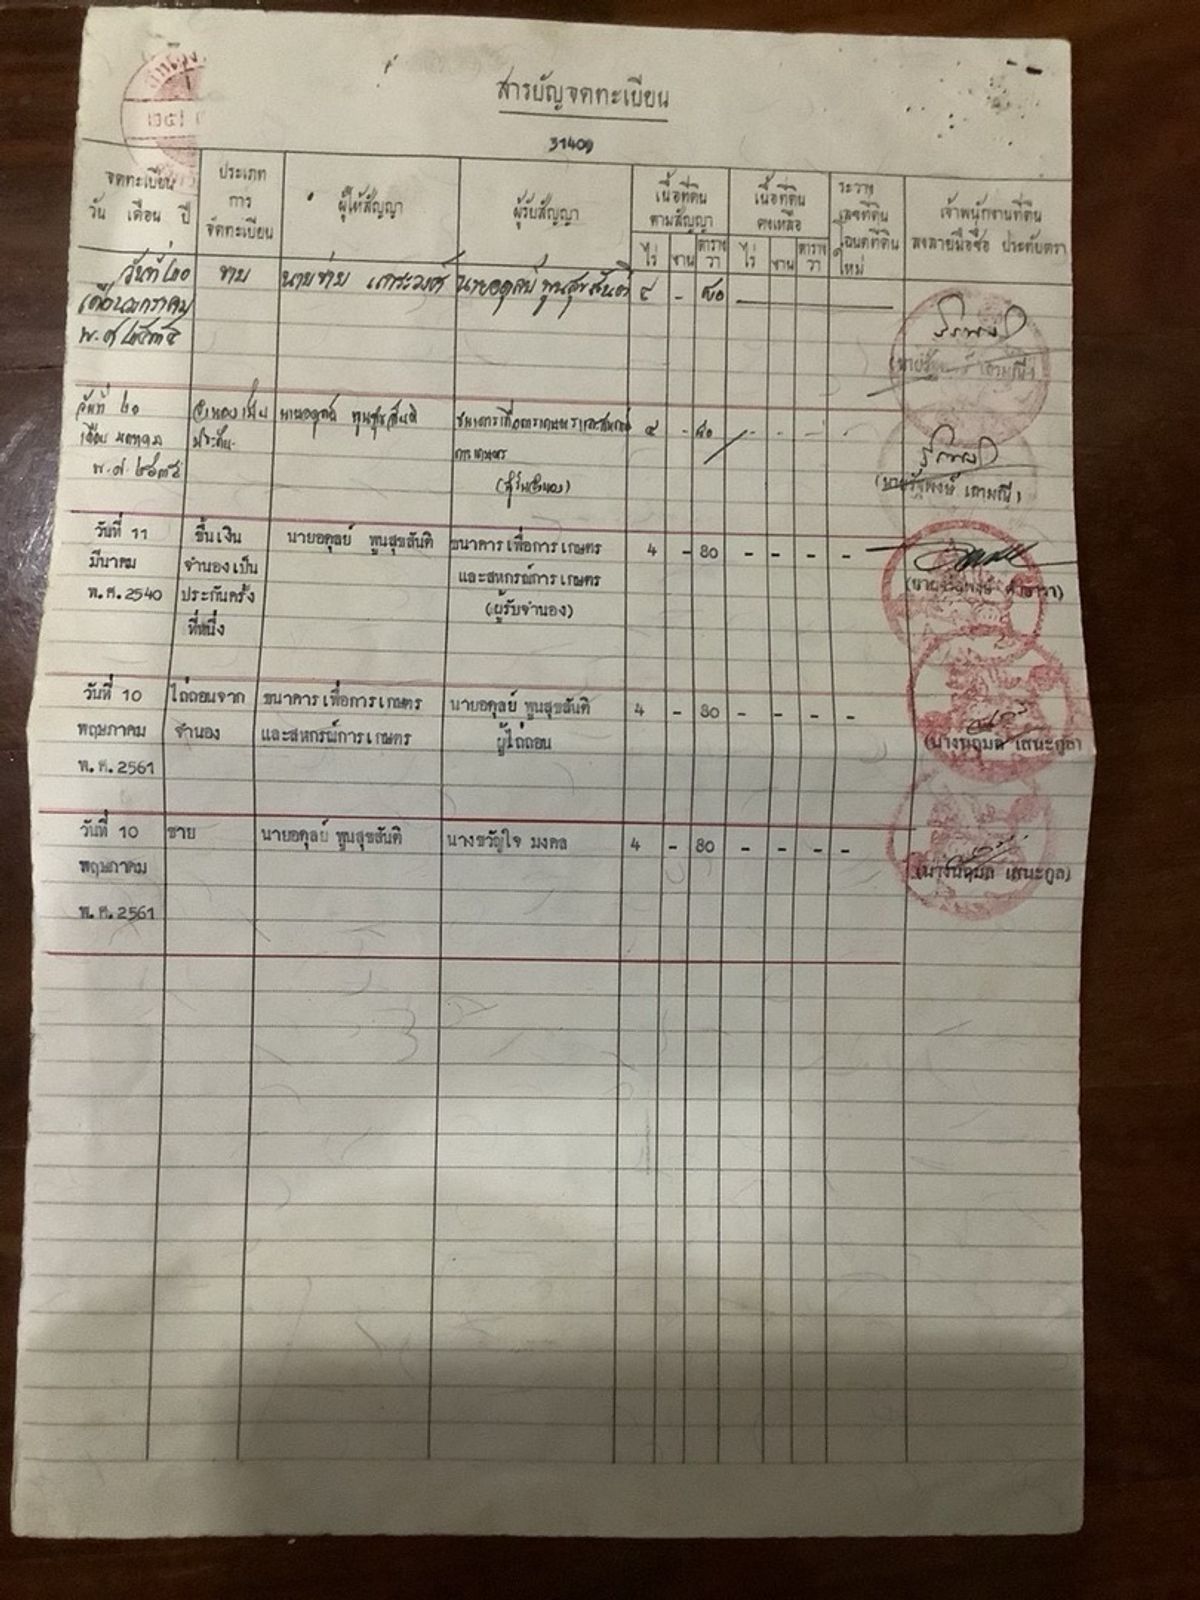 สารบัญจดทะเบียน
31409
จดทะเบียน
วัน เดือน ปี
ประเภท
การ
จดทะเบียน
ผู้ให้สัญญา
ผู้รับสัญญา
เนื้อที่ดิน
ตามสัญญา
ไร่ งาน ตาราง
วา
เนื้อที่ดิน
คงเหลือ
ไร่ งาน ตาราง
วา
ระวาง
เลขที่ดิน
โฉนดที่ดิน
ใหม่
เจ้าพนักงานที่ดิน
ลงลายมือชื่อ ประทับตรา
วันที่ ๒๐ ขาย นายอดุลย์ พูนสุขสันติ ๔ - ๘๐
เดือนมกราคม
พ.ศ. ๒๕๓๕
วันที่ ๒๐ จำนองเป็น นายอดุลย์ พูนสุขสันติ ธนาคารเพื่อการเกษตรและสหกรณ์ ๔ - ๘๐ - - - -
เดือน มกราคม ประกัน การเกษตร
พ.ศ. ๒๕๓๕ (ผู้รับจำนอง)
(นายรัฐพงษ์ เถามณี)
วันที่ 11 ขึ้นเงิน นายอดุลย์ พูนสุขสันติ ธนาคารเพื่อการเกษตร 4 - 80 - - - -
มีนาคม จำนองเป็น และสหกรณ์การเกษตร
พ.ศ.2540 ประกันครั้ง (ผู้รับจำนอง)
ที่หนึ่ง
วันที่ 10 ไถ่ถอนจาก ธนาคารเพื่อการเกษตร นายอดุลย์ พูนสุขสันติ 4 - 80 - - - -
พฤษภาคม จำนอง และสหกรณ์การเกษตร ผู้ไถ่ถอน (นางนฤมล เสนะกูล)
พ.ศ.2561
วันที่ 10 ขาย นายอดุลย์ พูนสุขสันติ นางขวัญใจ มงคล 4 - 80 - - - -
พฤษภาคม (นางนฤมล เสนะกูล)
พ.ศ.2561